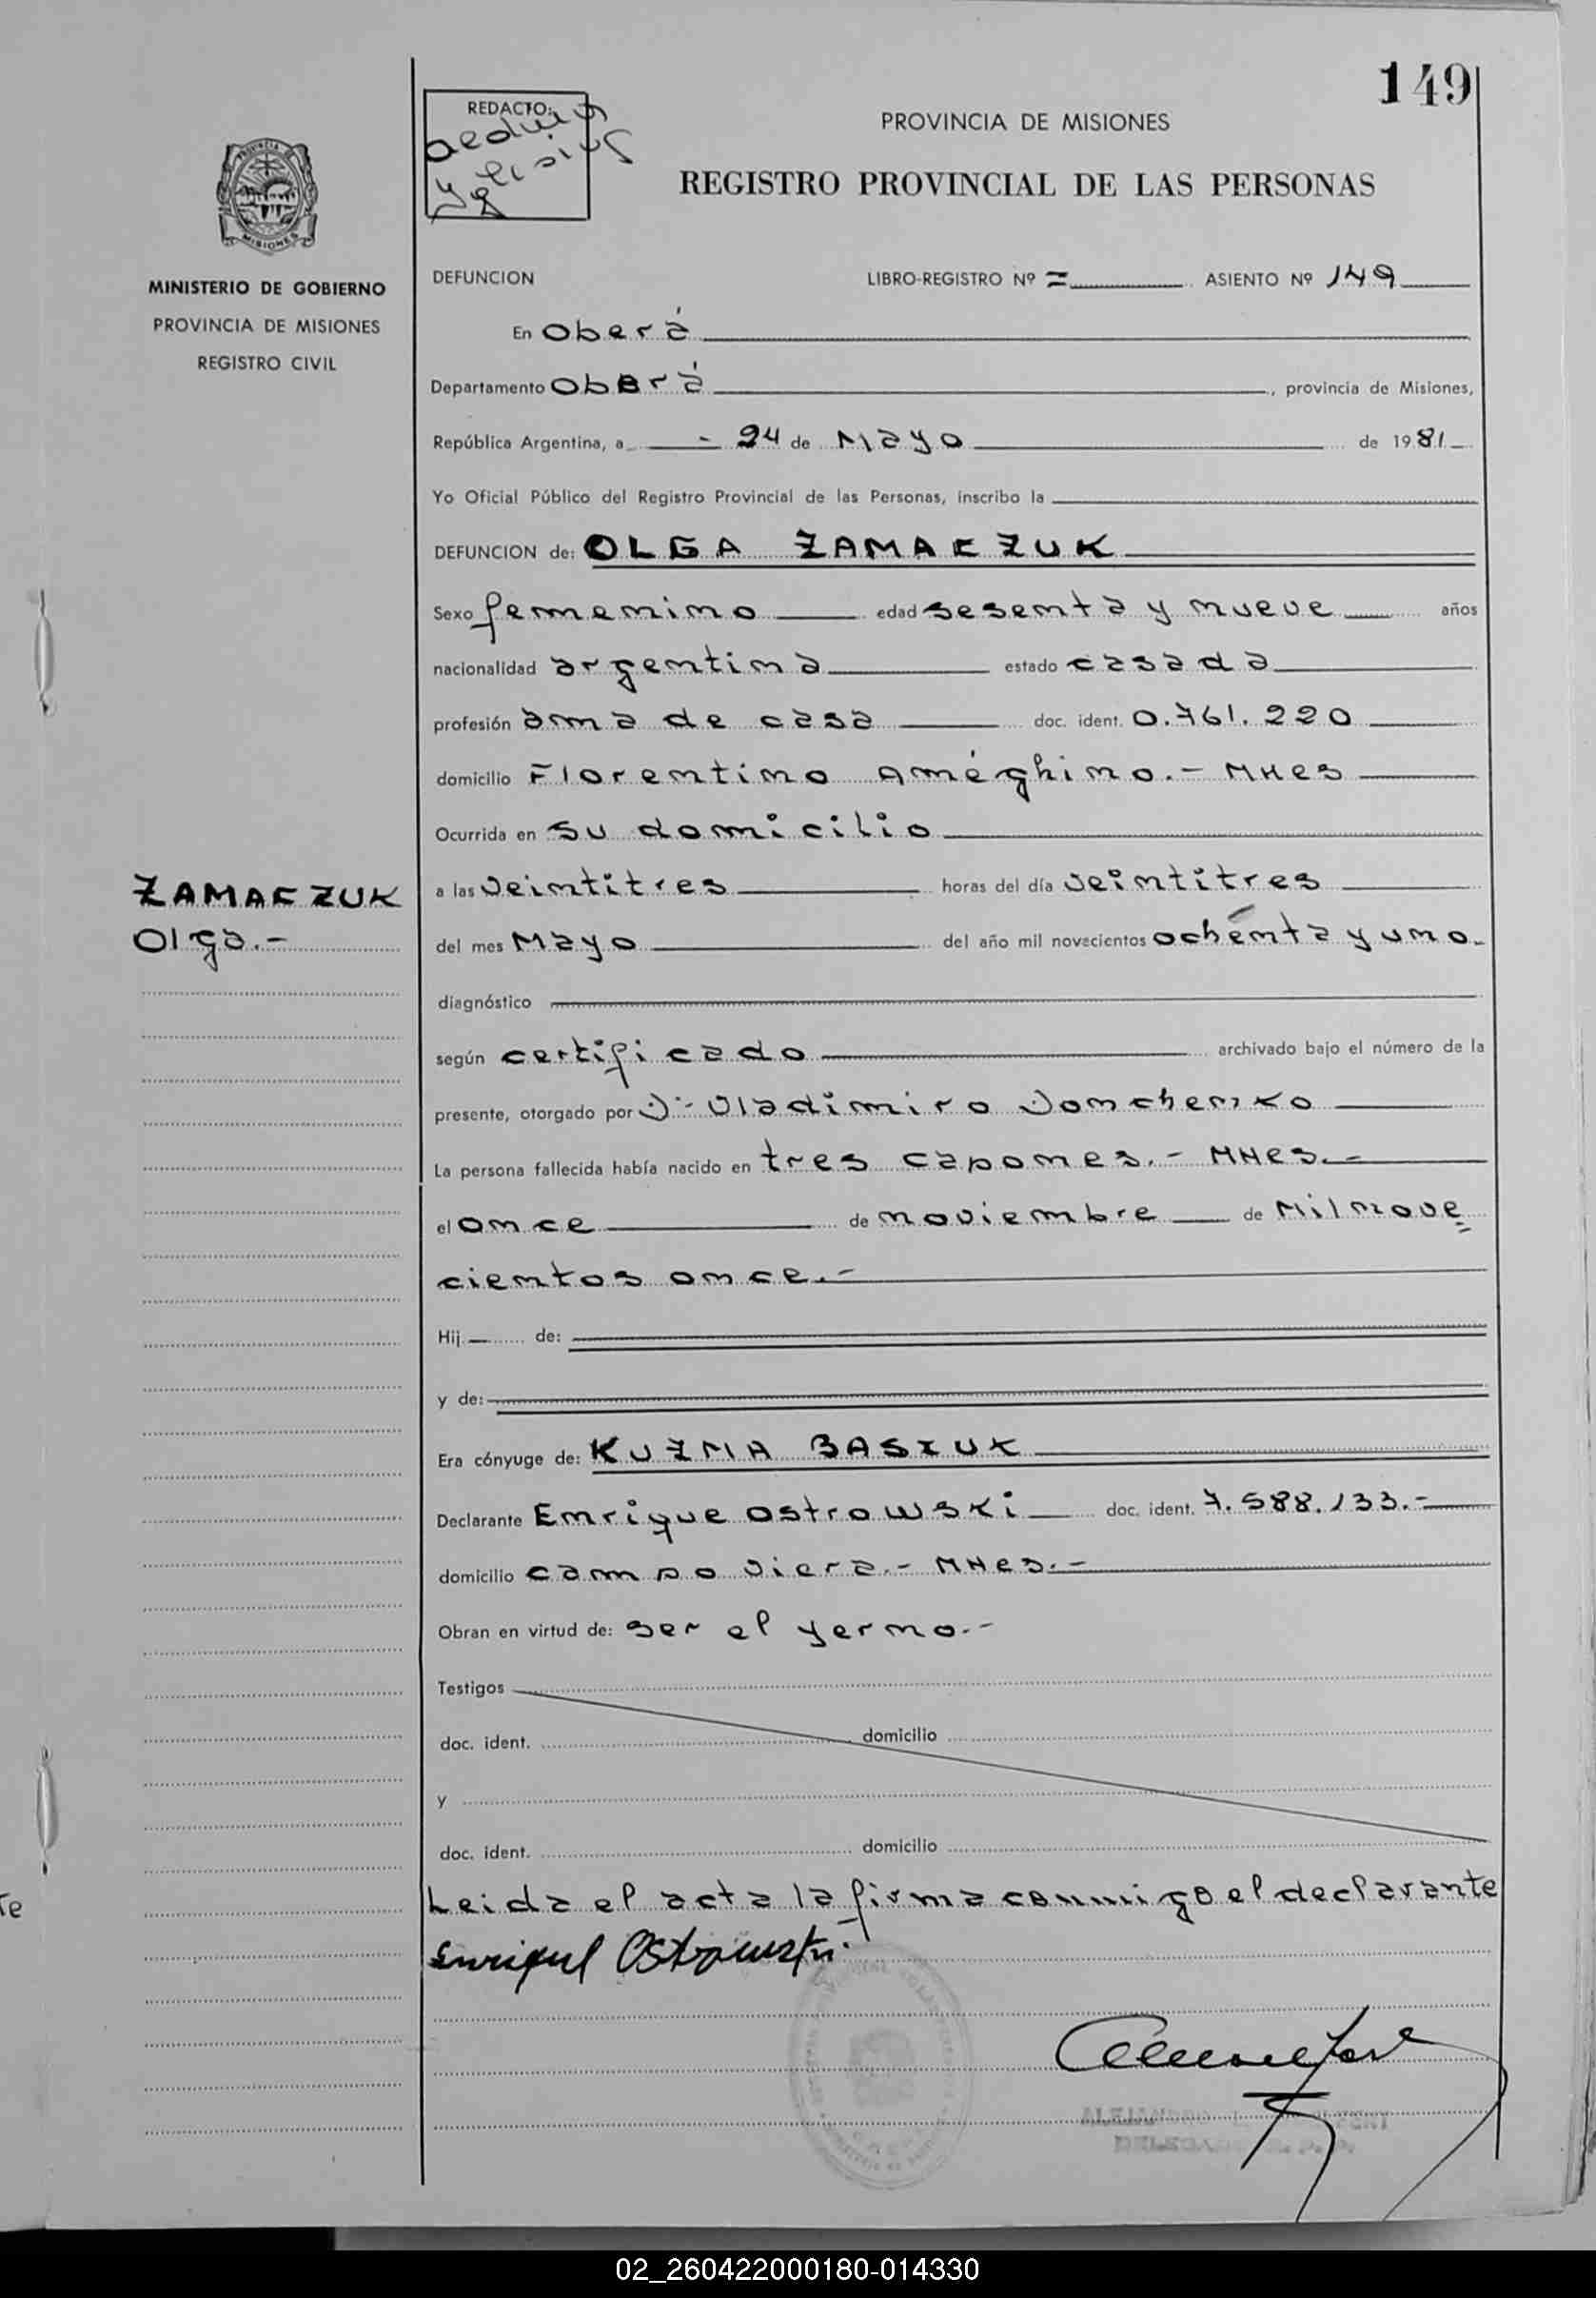 149
REDACTO:
PROVINCIA DE MISIONES
REGISTRO PROVINCIAL DE LAS PERSONAS
MINISTERIO DE GOBIERNO
PROVINCIA DE MISIONES
REGISTRO CIVIL
DEFUNCION LIBRO-REGISTRO Nº = ASIENTO Nº 149
En Oberá
Departamento Oberá, provincia de Misiones,
República Argentina, a - 24 de Mayo de 1981
Yo Oficial Público del Registro Provincial de las Personas, inscribo la
DEFUNCION de: OLGA ZAMACZUK
Sexo femenino edad sesenta y nueve años
nacionalidad argentina estado casada
profesión ama de casa doc. ident. 0.761.220
domicilio Florentino Améghino.- MNes
Ocurrida en su domicilio
a las veintitres horas del día veintitres
del mes Mayo del año mil novecientos ochenta y uno.
ZAMACZUK
Olga.-
diagnóstico
según certificado archivado bajo el número de la
presente, otorgado por Dr Vladimiro Domchenko
La persona fallecida había nacido en tres capones.- MNes.-
el once de noviembre de Mil nove
cientos once.-
Hij de:
y de:
Era cónyuge de: KUZMA BASIUK
Declarante Enrique Ostrowski doc. ident. 7.588.133.-
domicilio campo viera.- MNes.-
Obran en virtud de: ser el yerno.-
Testigos
doc. ident. domicilio
y
doc. ident. domicilio
Leida el acta la firma conmigo el declarante
Enrique Ostrowski
02_260422000180-014330